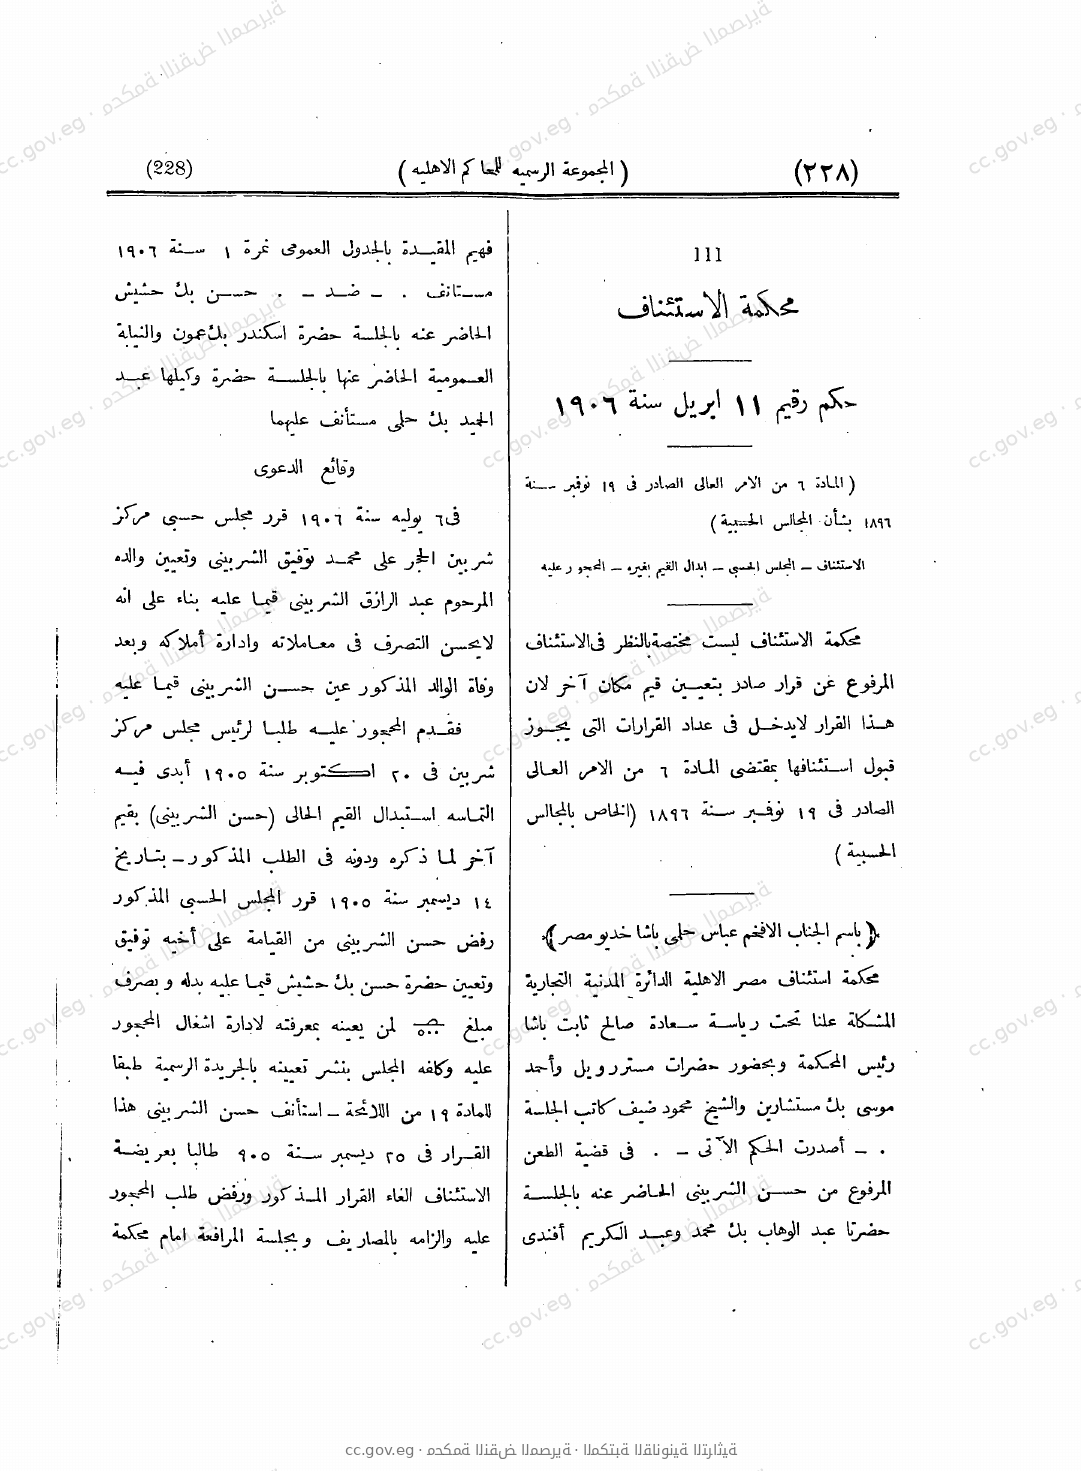 (٢٢٨)
( المجموعة الرسميه للمحاكم الاهليه )
(228)
111
محكمة الاستئناف
حكم رقيم ١١ ابريل سنة ١٩٠٦
( المادة ٦ من الامر العالى الصادر فى ١٩ نوفمبر سنة
١٨٩٦ بشأن المجالس الحسبية )
الاستئناف – المجلس الحسبى – ابدال القيم بغيره – المحجور عليه
محكمة الاستئناف ليست مختصة بالنظر فى الاستئناف
المرفوع عن قرار صادر بتعيين قيم مكان آخر لان
هذا القرار لايدخل فى عداد القرارات التى يجوز
قبول استئنافها بمقتضى المادة ٦ من الامر العالى
الصادر فى ١٩ نوفمبر سنة ١٨٩٦ (الخاص بالمجالس
الحسبية )
﴿ باسم الجناب الافخم عباس حلمى باشا خديو مصر ﴾
محكمة استئناف مصر الاهلية الدائرة المدنية التجارية
المشكلة علنا تحت رياسة سعادة صالح ثابت باشا
رئيس المحكمة وبحضور حضرات مستر رويل وأحمد
موسى بك مستشارين والشيخ محمود ضيف كاتب الجلسة
. – أصدرت الحكم الآتى – . فى قضية الطعن
المرفوع من حسن الشربينى الحاضر عنه بالجلسة
حضرتا عبد الوهاب بك محمد وعبد الكريم أفندى
فهيم المقيدة بالجدول العمومى نمرة ١ سنة ١٩٠٦
مستانف . – ضد – . حسن بك حشيش
الحاضر عنه بالجلسة حضرة اسكندر بك عمون والنيابة
العمومية الحاضر عنها بالجلسة حضرة وكيلها عبد
الحميد بك حلمى مستأنف عليهما
وقائع الدعوى
فى ٦ يوليه سنة ١٩٠٦ قرر مجلس حسبى مركز
شربين الحجر على محمد توفيق الشربينى وتعيين والده
المرحوم عبد الرازق الشربينى قيما عليه بناء على انه
لايحسن التصرف فى معاملاته وادارة أملاكه وبعد
وفاة الوالد المذكور عين حسن الشربينى قيما عليه
فقدم المحجور عليه طلبا لرئيس مجلس مركز
شربين فى ٢٠ اكتوبر سنة ١٩٠٥ أبدى فيه
التماسه استبدال القيم الحالى (حسن الشربينى) بقيم
آخر لما ذكره ودونه فى الطلب المذكور – بتاريخ
١٤ ديسمبر سنة ١٩٠٥ قرر المجلس الحسبى المذكور
رفض حسن الشربينى من القيامة على أخيه توفيق
وتعيين حضرة حسن بك حشيش قيما عليه بدله وبصرف
مبلغ لمن يعينه بمعرفته لادارة اشغال المحجور
عليه وكلفه المجلس بنشر تعيينه بالجريدة الرسمية طبقا
للمادة ١٩ من اللائحة – استأنف حسن الشربينى هذا
القرار فى ٢٥ ديسمبر سنة ٩٠٥ طالبا بعريضة
الاستئناف الغاء القرار المذكور ورفض طلب المحجور
عليه والزامه بالمصاريف وبجلسة المرافعة امام محكمة
cc.gov.eg · محكمة النقض المصرية · المكتبة القانونية التراثية